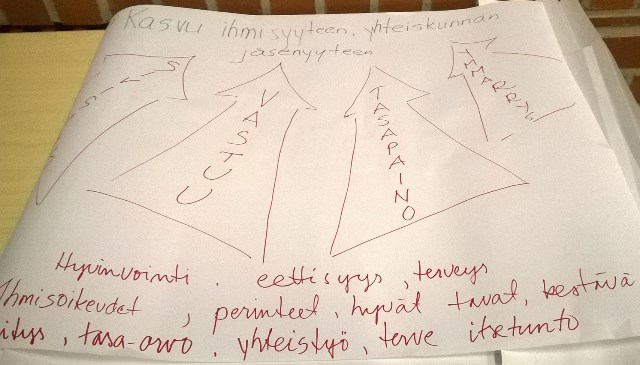 Kasvu ihmisyyteen, yhteiskunnan
jäsenyyteen
VASTUU
TASAPAINO
Hyvinvointi, eettisyys, terveys
Ihmisoikeudet, perinteet, hyvät tavat, kestävä
tasa-arvo, yhteistyö, terve itsetunto